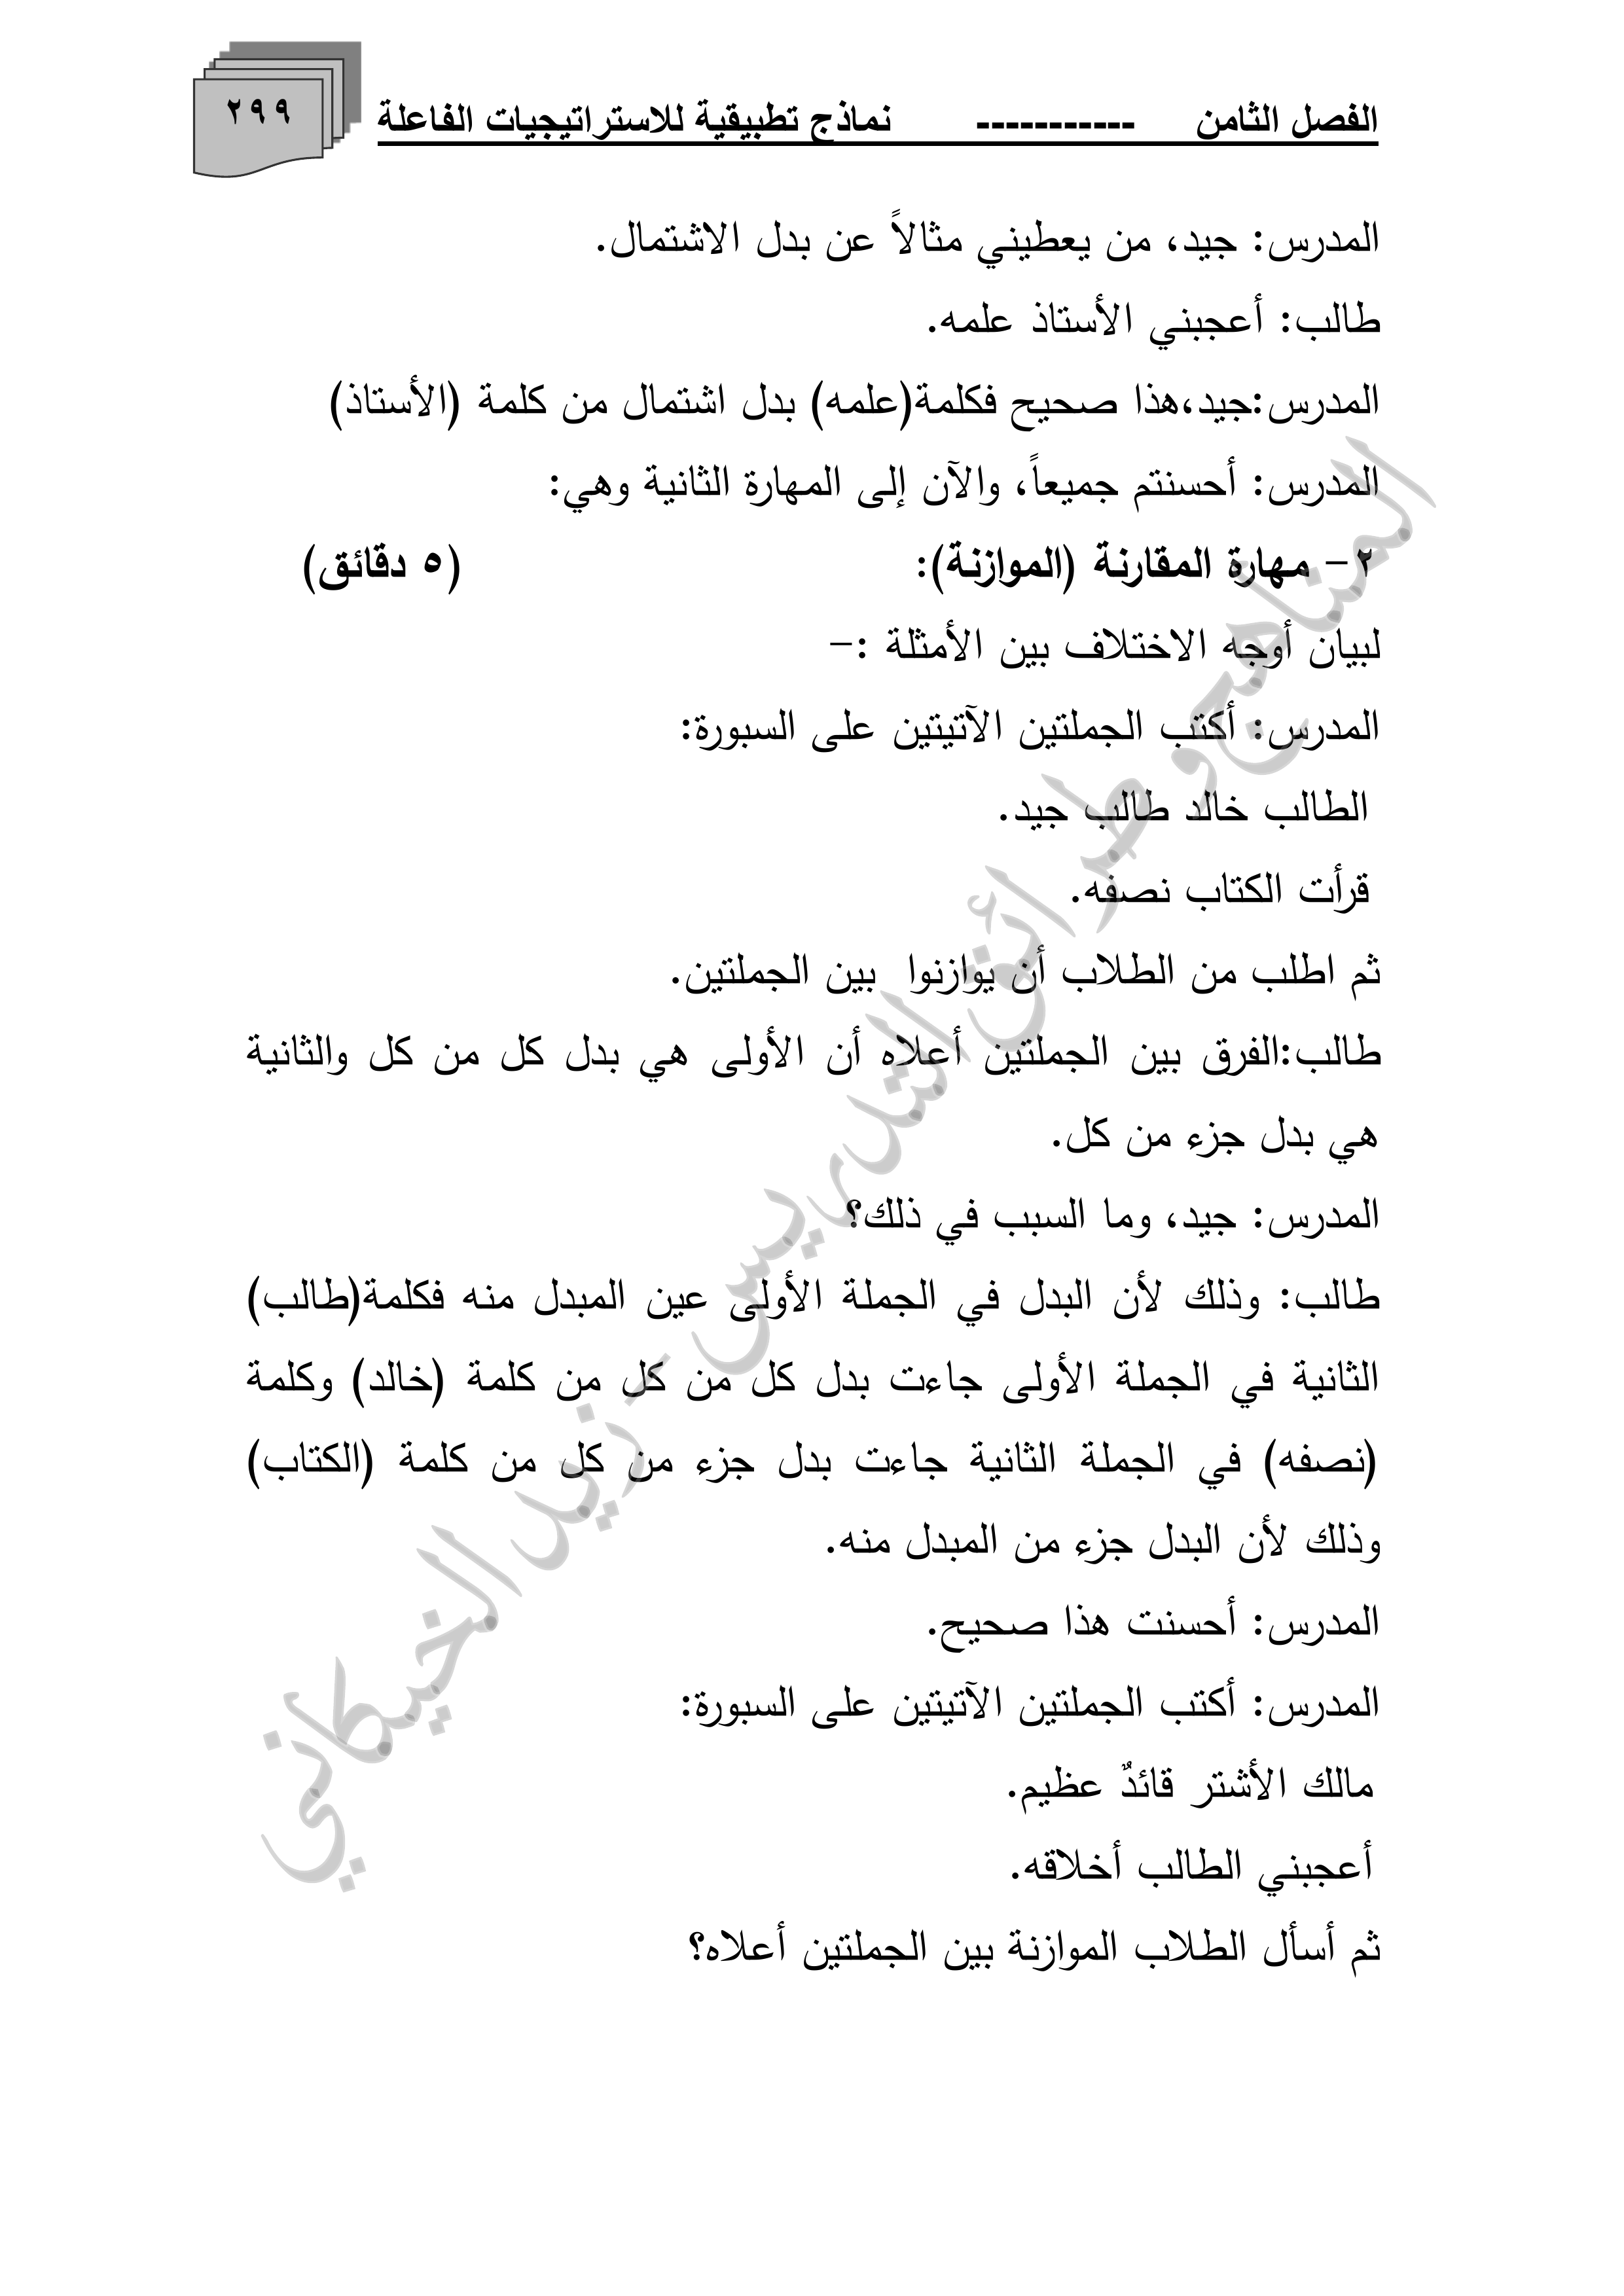 الفصل الثامن ----------- نماذج تطبيقية للاستراتيجيات الفاعلة
٢٩٩
المدرس: جيد، من يعطيني مثالاً عن بدل الاشتمال.
طالب: أعجبني الأستاذ علمه.
المدرس:جيد،هذا صحيح فكلمة(علمه) بدل اشتمال من كلمة (الأستاذ)
المدرس: أحسنتم جميعاً، والآن إلى المهارة الثانية وهي:
٢- مهارة المقارنة (الموازنة): (٥ دقائق)
لبيان أوجه الاختلاف بين الأمثلة :-
المدرس: أكتب الجملتين الآتيتين على السبورة:
الطالب خالد طالب جيد.
قرأت الكتاب نصفه.
ثم اطلب من الطلاب أن يوازنوا بين الجملتين.
طالب:الفرق بين الجملتين أعلاه أن الأولى هي بدل كل من كل والثانية
هي بدل جزء من كل.
المدرس: جيد، وما السبب في ذلك؟
طالب: وذلك لأن البدل في الجملة الأولى عين المبدل منه فكلمة(طالب)
الثانية في الجملة الأولى جاءت بدل كل من كل من كلمة (خالد) وكلمة
(نصفه) في الجملة الثانية جاءت بدل جزء من كل من كلمة (الكتاب)
وذلك لأن البدل جزء من المبدل منه.
المدرس: أحسنت هذا صحيح.
المدرس: أكتب الجملتين الآتيتين على السبورة:
مالك الأشتر قائدٌ عظيم.
أعجبني الطالب أخلاقه.
ثم أسأل الطلاب الموازنة بين الجملتين أعلاه؟
المناهج وطرائق التدريس - زيد الخيكاني